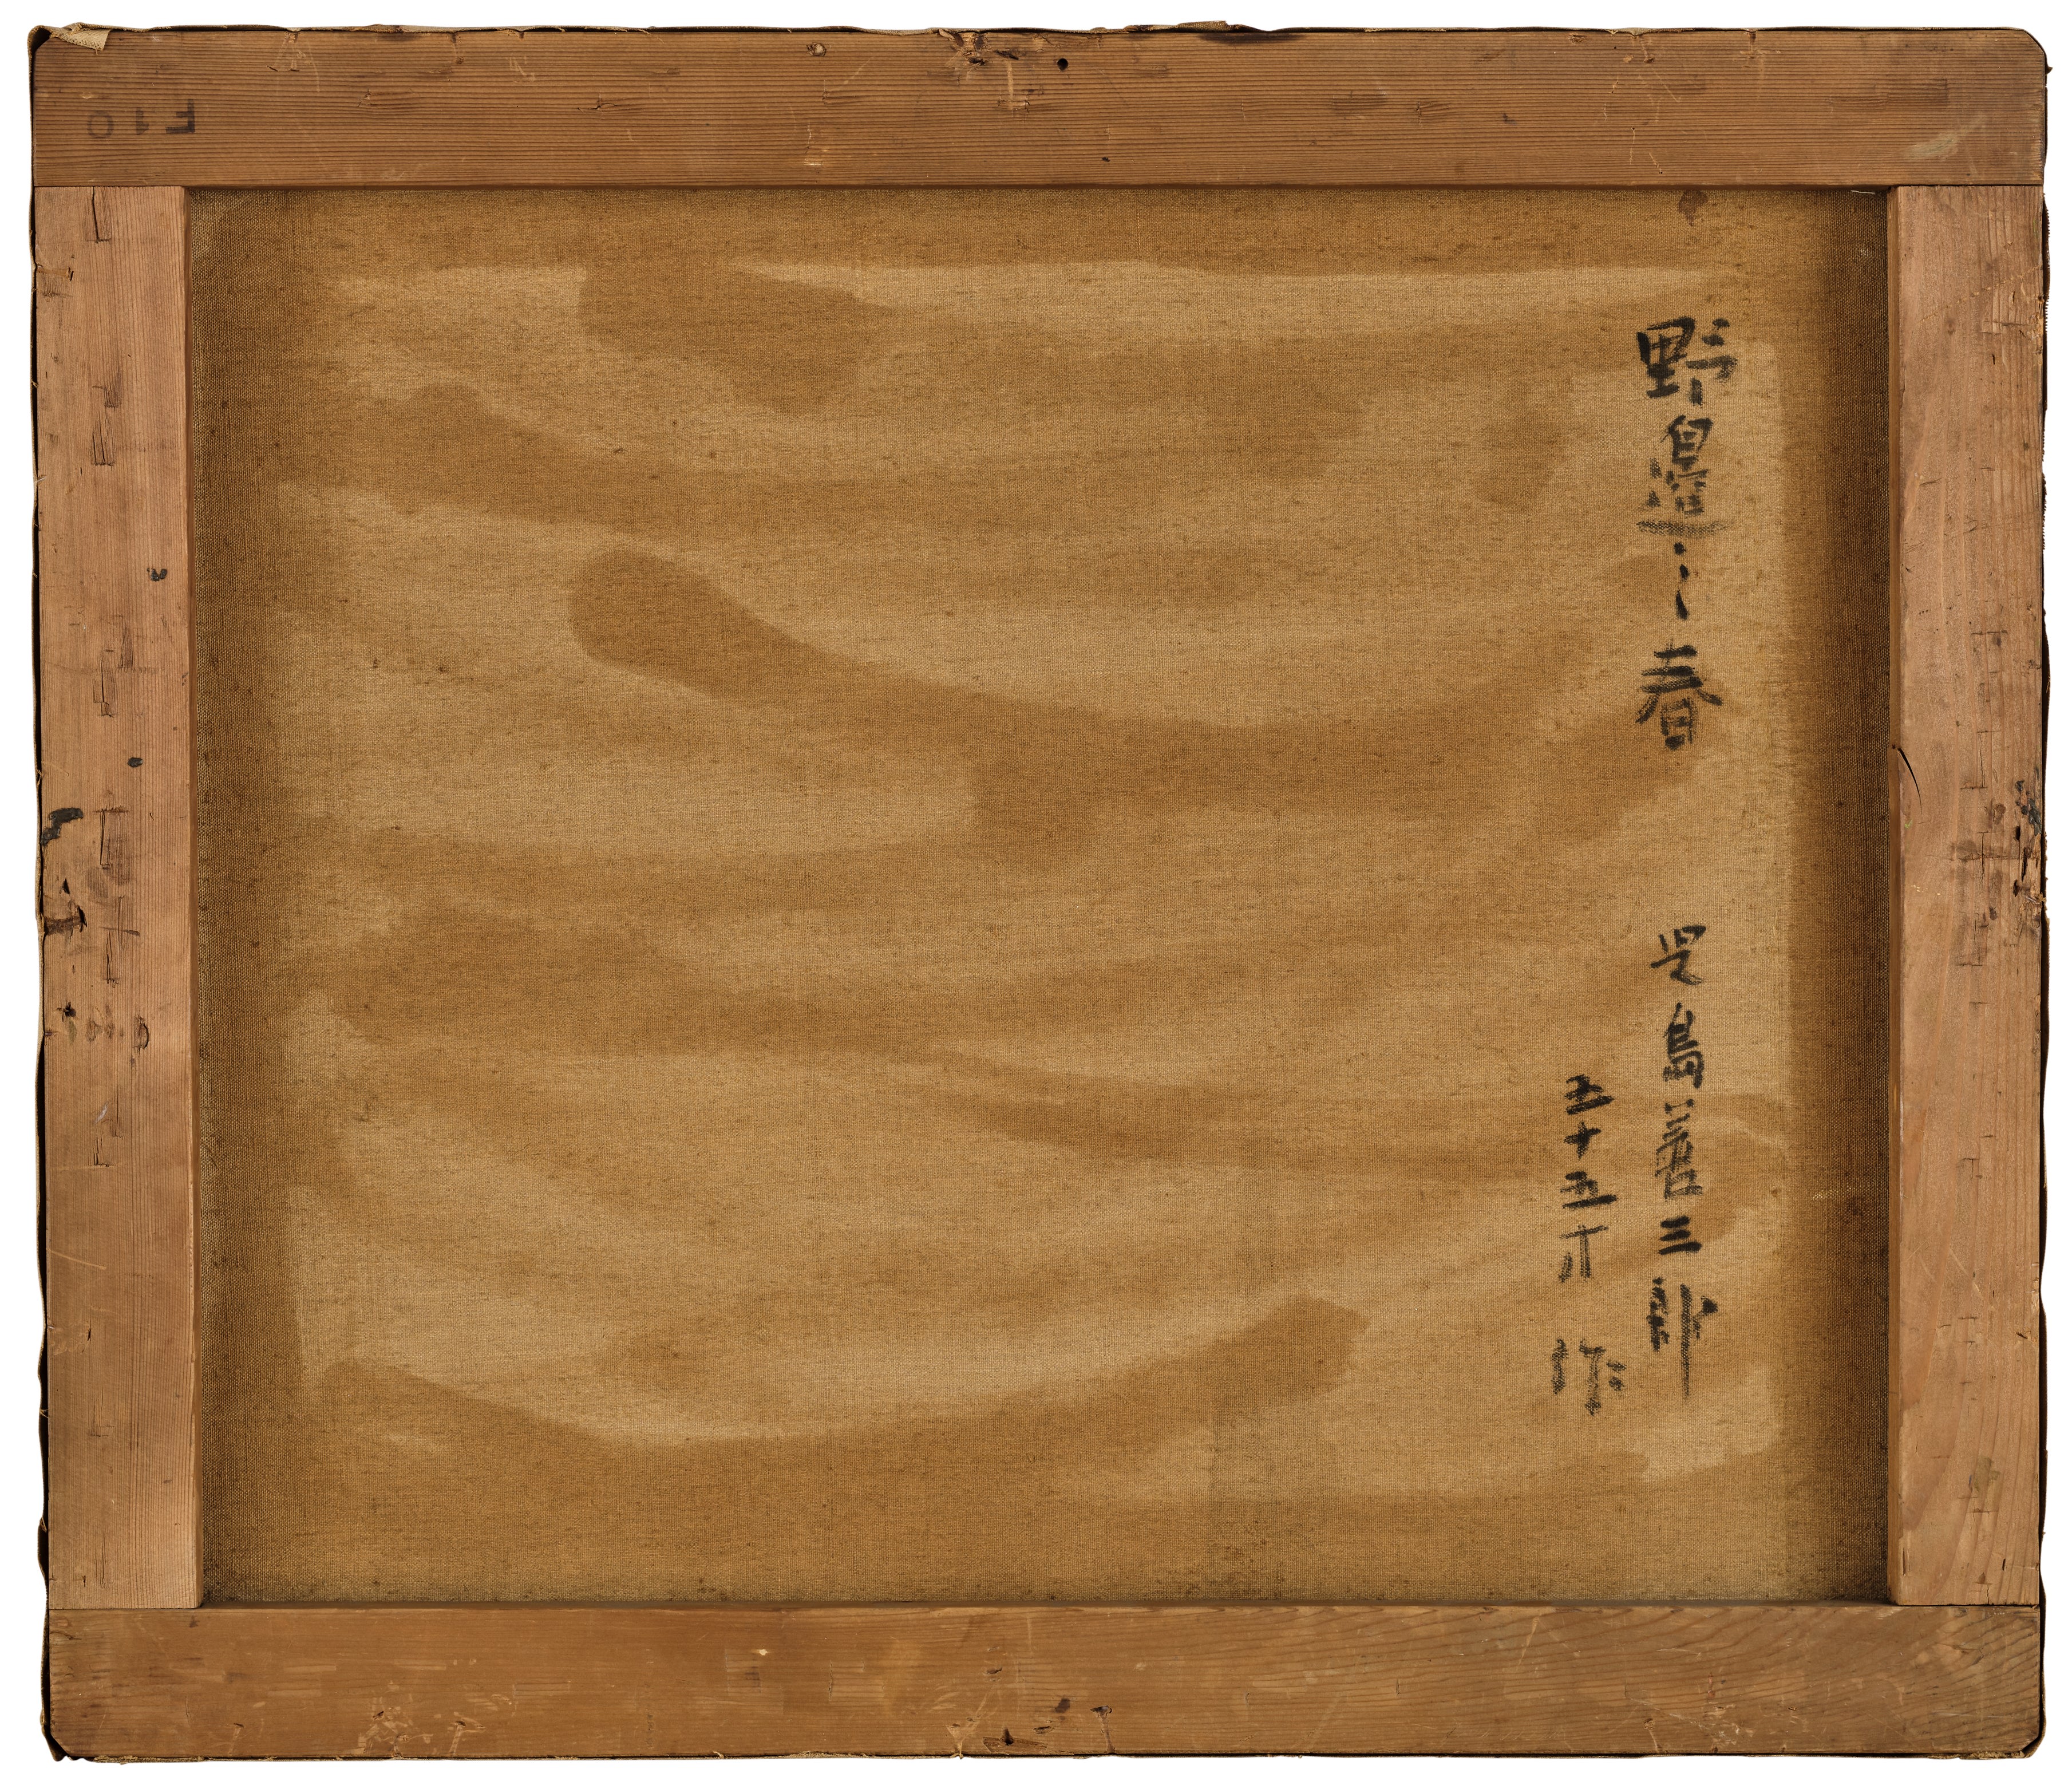 F10
野邊之春
児島善三郎
五十五才 作